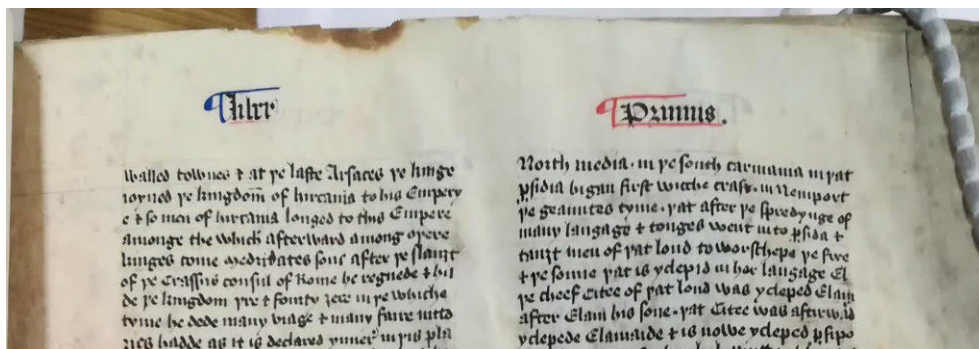 ¶ Liber
¶ Primus.
walled townes & at þe laste Arsaces þe kinge
ioyned þe kingdom̄ of hircania to his Empery
e & so men of hircania longed to this Empere
amonge the which afterward among oþere
kinges come medridates sone after þe slauȝt
of þe Crassus consul of Rome he regnede & hil
de þe kingdom þre & fourty ȝere in þe whiche
tyme he dede many viage & many faire uicto
ries hadde as it is declared ynner in þis pla
North media · in þe south carmania in þat
ꝑsidia bigan first wicche craft · in Nemport
þe geauntes tyme · þat after þe spredynge of
many langage & tonges went into ꝑsida &
tauȝt men of þat lond to worschepe þe fire
& þe sonne þat is yclepid in hor langage El
þe cheef Citee of þat lond was ycleped Elam
after Elam his sone · þat Citee was afterwad
yclepede Elamaide & is nowe ycleped ꝑsipo